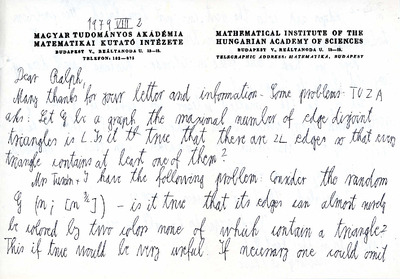 1979 VIII 2
MAGYAR TUDOMÁNYOS AKADÉMIA
MATEMATIKAI KUTATÓ INTÉZETE
BUDAPEST V., REÁLTANODA U. 13—15.
TELEFON: 182—875
MATHEMATICAL INSTITUTE OF THE
HUNGARIAN ACADEMY OF SCIENCES
BUDAPEST V., REÁLTANODA U. 13—15.
TELEGRAPHIC ADDRESS: MATEMATIKA, BUDAPEST
Dear Ralph,
Many thanks for your letter and information. Some problems: TUZA
asks: Let G be a graph the maximal number of edge disjoint
triangles is L. Is it true that there are 2L edges so that every
triangle contains at least one of them?
I have the following problem: Consider the random
G (n; [cn^3/2]) — is it true that its edges can almost surely
be colored by two colors none of which contain a triangle?
This if true would be very useful. If necessary one could omit